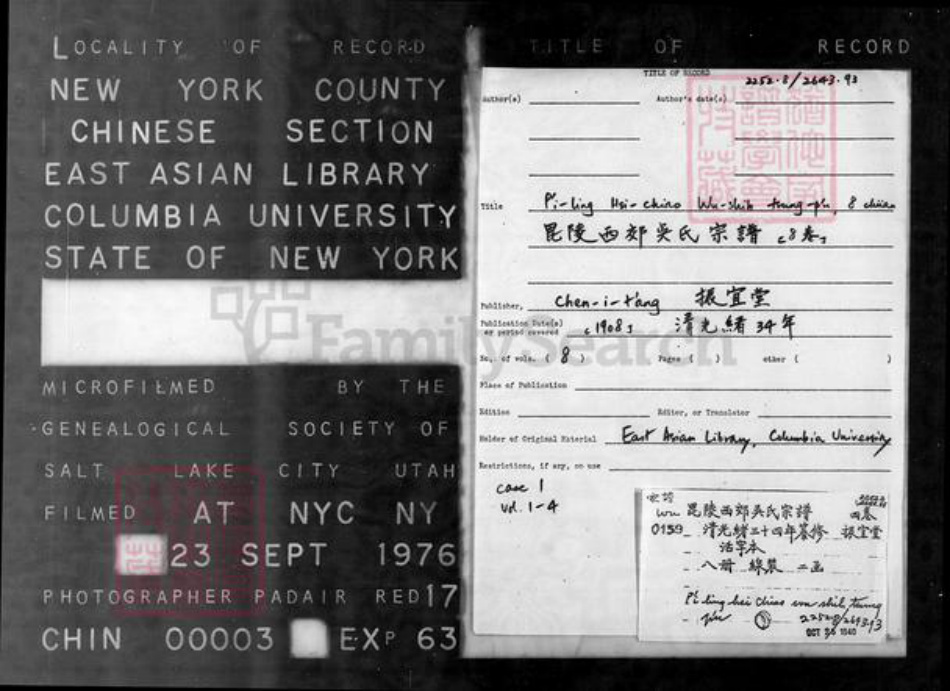 LOCALITY OF RECORD
NEW YORK COUNTY
CHINESE SECTION
EAST ASIAN LIBRARY
COLUMBIA UNIVERSITY
STATE OF NEW YORK
MICROFILMED BY THE
GENEALOGICAL SOCIETY OF
SALT LAKE CITY UTAH
FILMED AT NYC NY
23 SEPT 1976
PHOTOGRAPHER PADAIR RED17
CHIN 00003 EXP 63
TITLE OF RECORD
TITLE OF RECORD
2252.8/2643.93
Author(s) Author's date(s)
Title P'i-ling Hsi-chiao Wu-shih tsung-p'u, 8 chüan
毘陵西郊吳氏宗譜 [8卷]
Publisher, Chen-i-t'ang 振宜堂
Publication Date(s)
or period covered [1908] 清光緒34年
No. of vols. ( 8 ) Pages ( ) other ( )
Place of Publication
Edition Editor, or Translator
Holder of Original Material East Asian Library, Columbia University
Restrictions, if any, on use
case 1
vol. 1-4
wu 毘陵西郊吳氏宗譜
0159 清光緒三十四年纂修 振宜堂
活字本
八冊 線裝 二函
P'i ling hsi chiao wu shih tsung
p'u 2252.8/2643.93
OCT 1940
FamilySearch